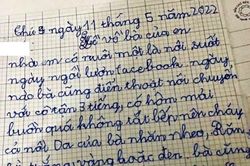 Thứ 3 ngày 11 tháng 5 năm 2022
vô bà của em
nhà em có nuôi một bà nội suốt
ngày ngồi lướt facebook ngày
nào bà cũng điện thoại nói chuyện
với cô tận 3 tiếng, có hôm mải
buôn quá không tắt bếp nên cháy
cả nồi. Da của bà nhăn nheo, Răm
bà vàng hoặc đen bà